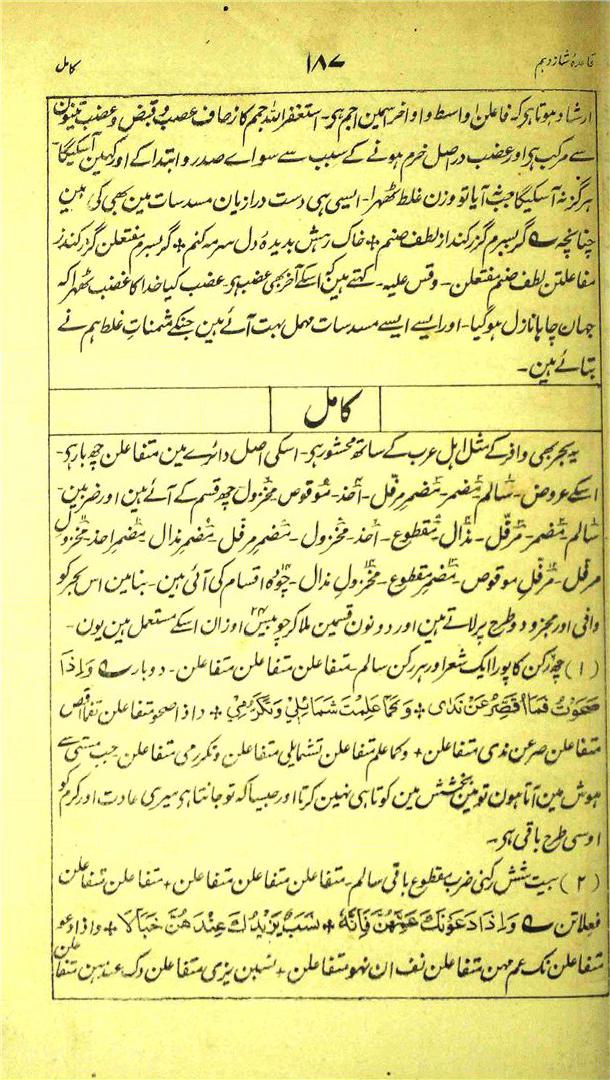 قاعدۂ شانزدہم ۱۸۷ کامل
ارشاد ہوتا ہی کہ فاعلن اواسط و اواخر ہمین اجم ہی۔ استغفراللہ اجم کا زحاف عصب و قبض و عضب تینون
سے مرکب ہی اور عضب دراصل خرم ہونے کے سبب سے سواے صدر و ابتدا کے اور کہین آسکیگا۔
ہرگز نہ آسکیگا جب آیا تو وزن غلط ٹھہرا۔ ایسی ہی دست درازیان مسدسات مین بھی کی ہین
چنانچہ ؎ گر بسرم گزر کند از لطف صنم + خاک رہش بدیدہ دل سرمہ کنم + گر بسرم مفتعلن گزر کندز
مفاعلتن لطف صنم مفتعلن۔ وقس علیہ۔ کہتے ہین کہ اسکے آخر بھی عضب ہی۔ عضب کیا خدا کا غضب ٹھہرا کہ
جہان چاہا نازل ہوگیا۔ اور ایسے ایسے مسدسات مہمل بہت آئے ہین جنکے مثمنات غلط ہم نے
بتائے ہین۔
کامل
یہ بحر بھی وافر کے مثل اہل عرب کے ساتھ محشور ہی۔ اسکی اصل دائرے مین متفاعلن چھ بار ہی۔
اسکے عروض۔ سالم۔ مضمر۔ مضمر مرفل۔ احذ۔ موقوص۔ مخزول چھ قسم کے آئے ہین اور ضربین۔
سالم۔ مضمر۔ مرفل۔ مذال۔ مقطوع۔ احذ۔ مخزول۔ مضمر مرفل۔ مضمر مذال۔ مضمر احذ۔ مخزول
مرفل۔ مرفل موقوص۔ مضمر مقطوع۔ مخزول مذال۔ چودہ اقسام کی آئی ہین۔ بنابرین اس بحر کو
وافی اور مجزو دو طرح پر لاتے ہین اور دونون قسمین ملا کر چوبیس ۲۴ اوزان اسکے مستعمل ہین یون۔
(۱) چھ رکن کا پورا ایک شعر اور ہر رکن سالم۔ متفاعلن متفاعلن متفاعلن۔ دوبار ؎ وَاِذَا
صَحَوْتُ فَمَا اُقَصِّرُ عَنْ نَدًی + وَکَمَا عَلِمْتِ شَمَائِلِیْ وَتَکَرُّمِیْ + واذا صحو متفاعلن تفمااقص
متفاعلن صر عن ندی متفاعلن + وکما علم متفاعلن تشمایلی متفاعلن وتکررمی متفاعلن۔ جب مستی سے
ہوش مین آتا ہون تو مین بخشش مین کوتاہی نہین کرتا اور جیسا کہ تو جانتا ہی میری عادت اور کرم کو
اوسی طرح باقی ہی۔
(۲) بیت شش رکنی ضرب مقطوع باقی سالم۔ متفاعلن متفاعلن متفاعلن + متفاعلن متفاعلن
فعلاتن ؎ وَاِذَا دَعَوْنَکَ عَمَّهُنَّ فَاِنَّهٗ + نَسَبٌ یَزِیْدُکَ عِنْدَهُنَّ خَبَالَا + واذا دعو
متفاعلن نک عم مهن متفاعلن نف ان نہو متفاعلن + نسبن یزی متفاعلن دک عندہن متفاعلن